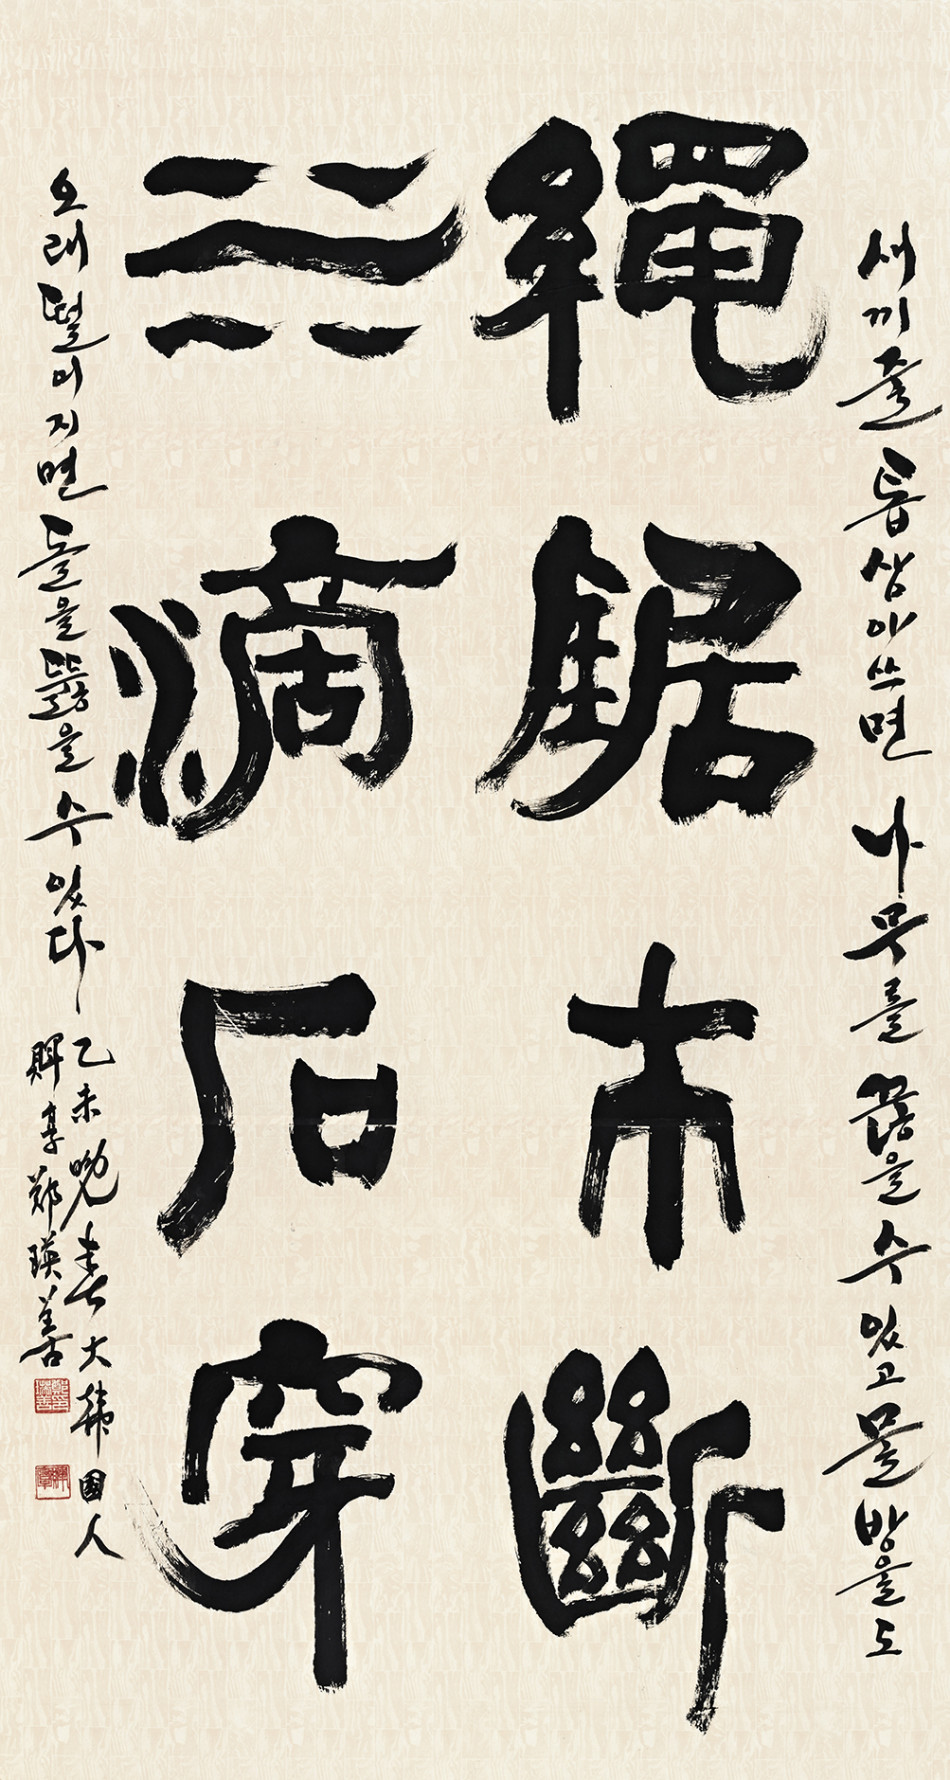 새끼줄 톱삼아쓰면 나무를 끊을 수 있고 물방울도
繩鋸木斷
水滴石穿
오래 떨어지면 돌을 뚫을 수 있다
乙未晚春大韓國人
鄭瑛善